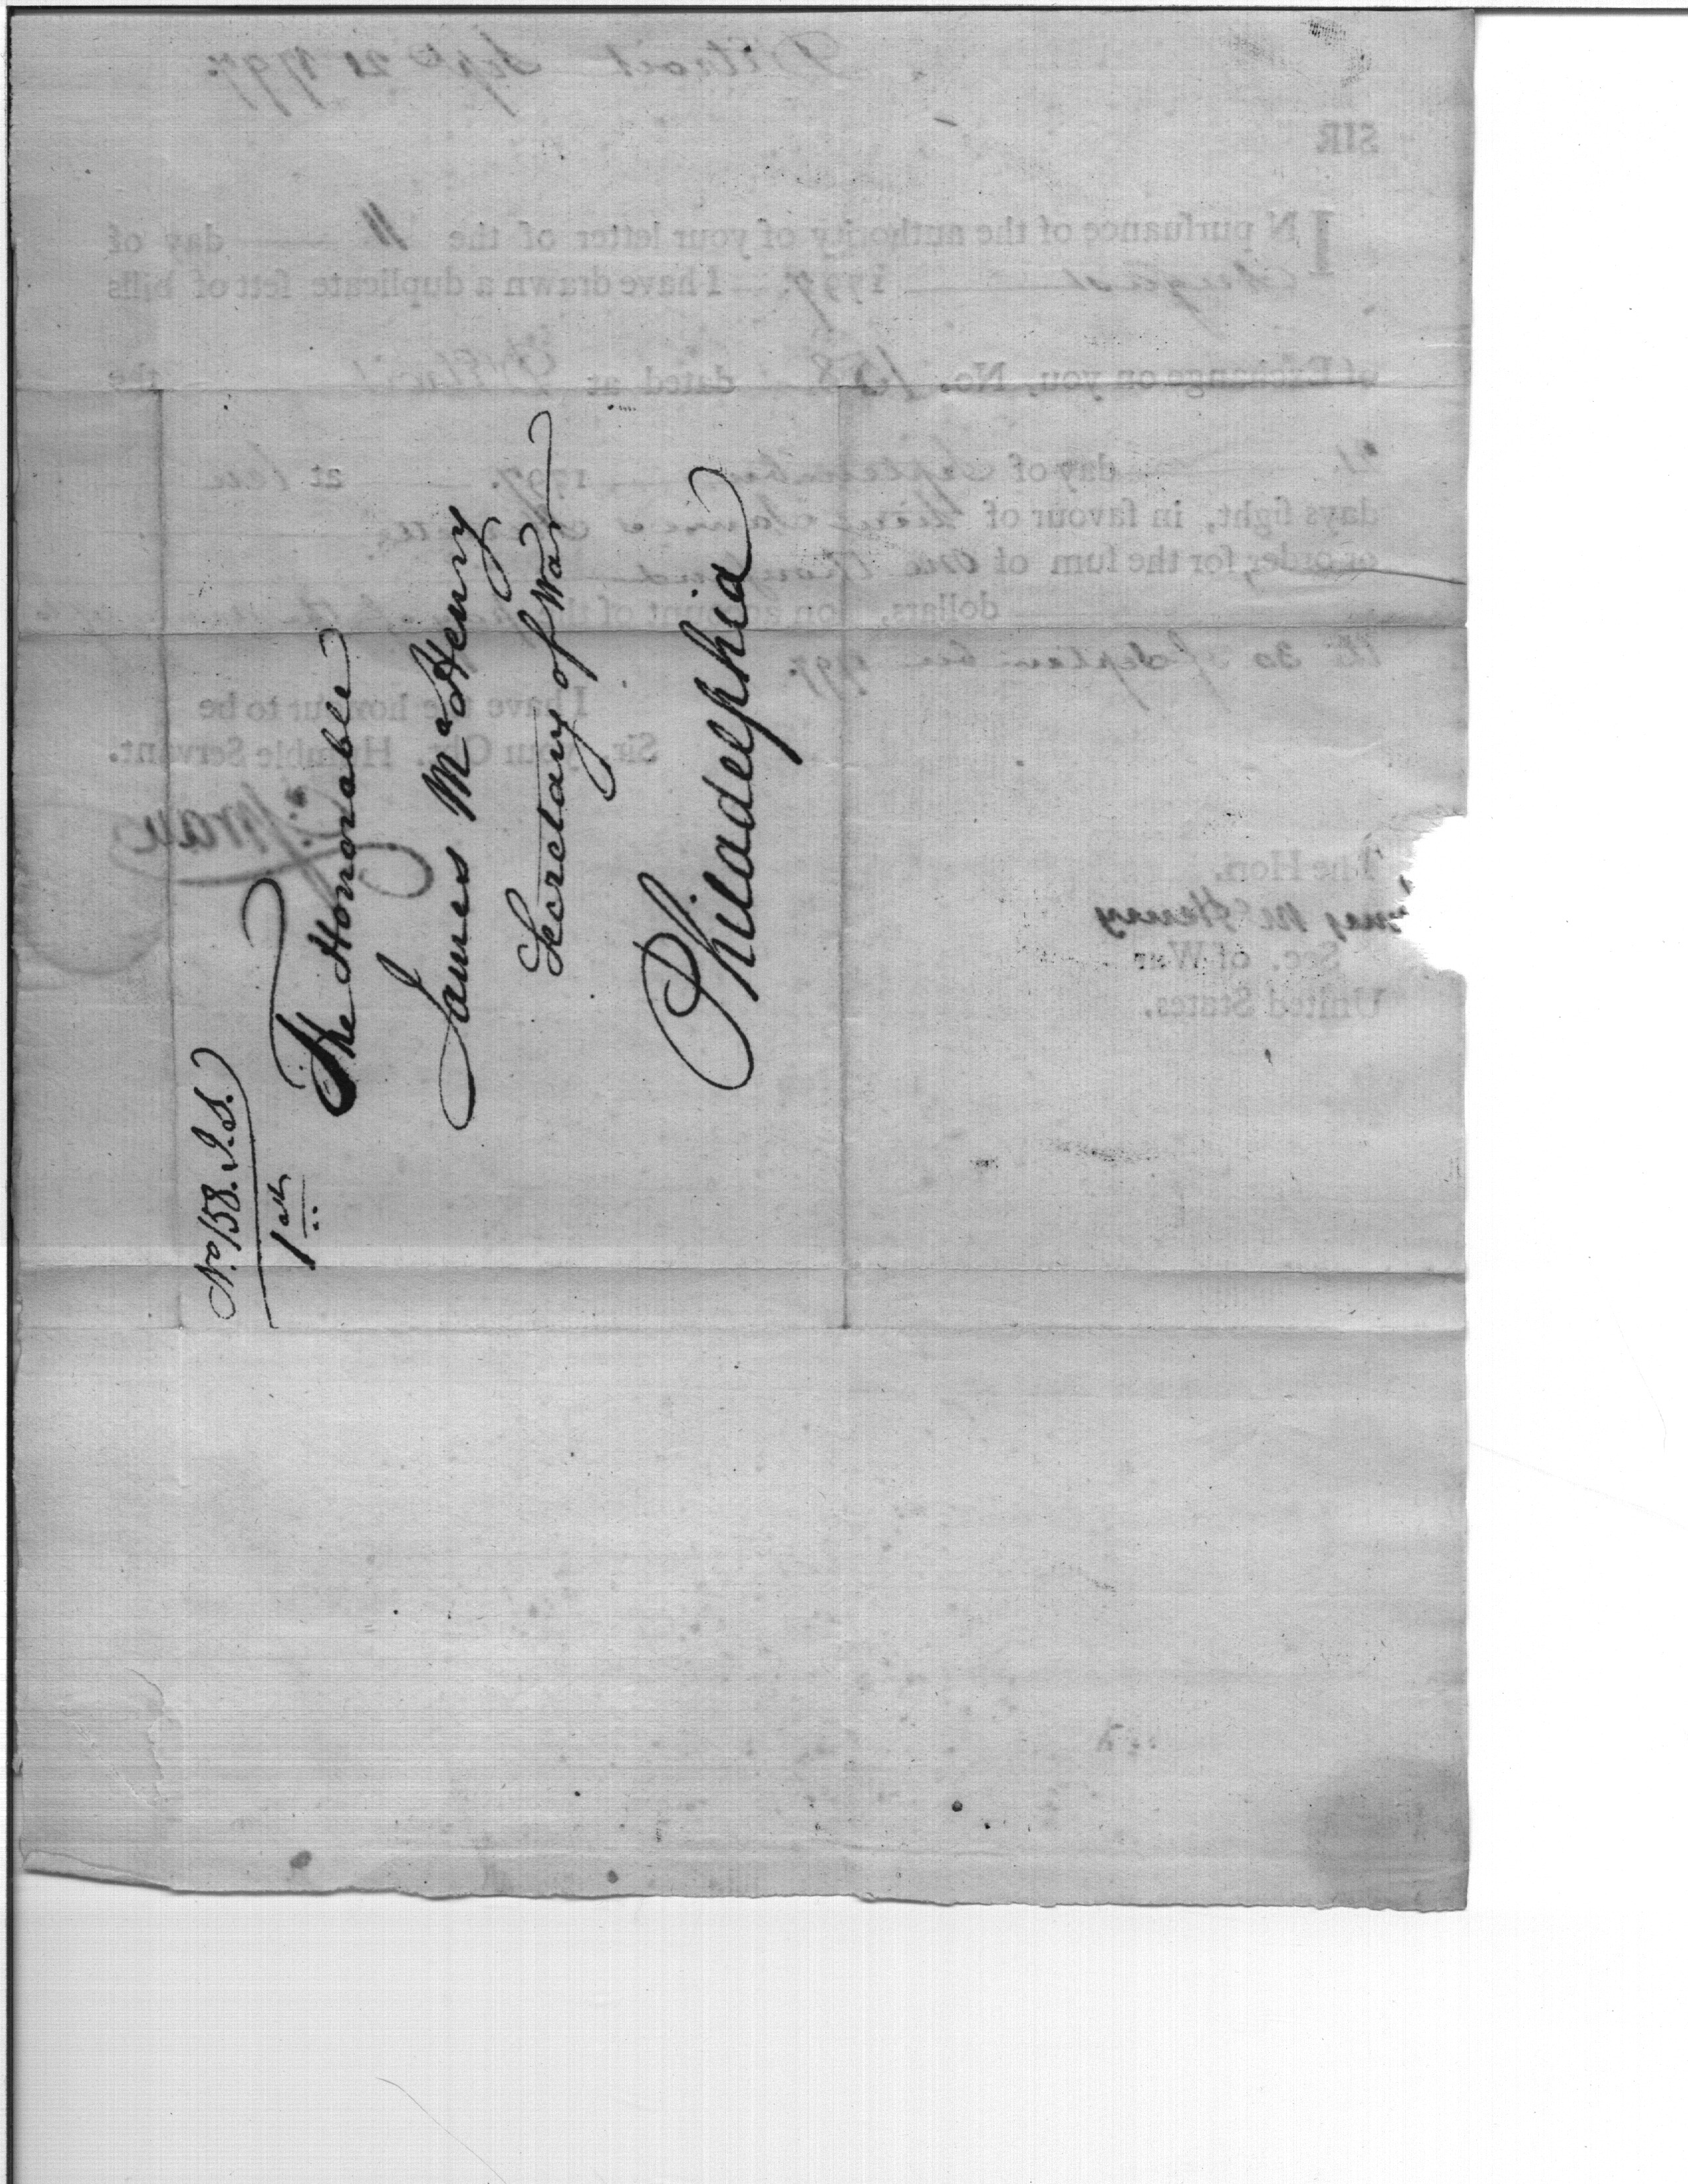 No. 158. I.S.
1st
The Honorable
James McHenry
Secretary of War
Philadelphia
Detroit Sept 21 1797.
SIR
IN purſuance of the authority of your letter of the 11 day of
August 1797. I have drawn a duplicate ſett of bills
of Exchange on you, No. 158 dated at Detroit the
21 day of September 1797. at ten
days ſight, in favour of
or order, for the ſum of one thousand
dollars, on account of the
the 30 of September 1797.
I have the honour to be
Sir, Your Obt. Humble Servant.
The Hon.
James McHenry
Sec. of War
United States.